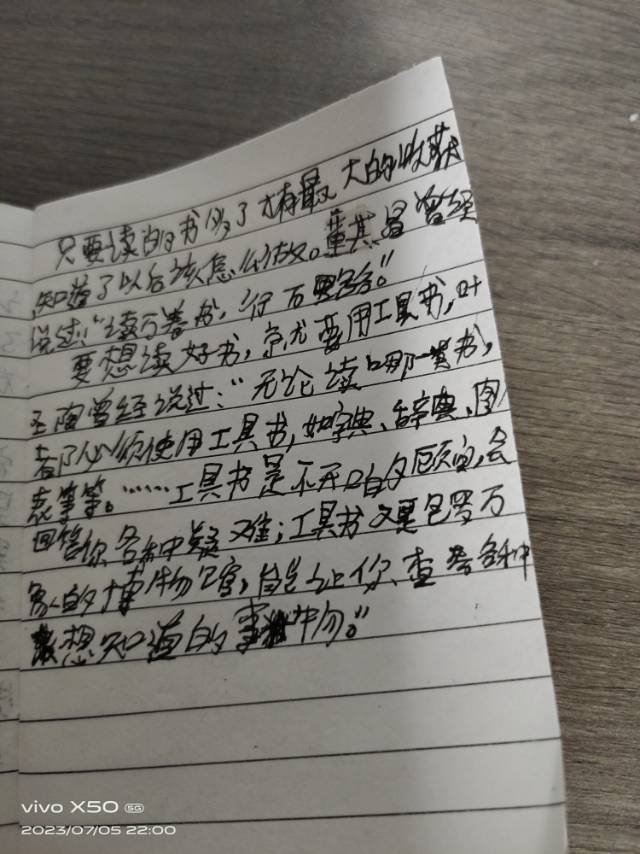 只要读的书多了才有最大的收获
知道了以后该怎么做。董其昌曾经
说过：“读万卷书，行万里路。”
要想读好书，就要用工具书，叶
圣陶曾经说过：“无论读哪一类书，
都必须使用工具书，如字典、辞典、图
表等等。……工具书是不开口的顾问，会
回答你各种疑难；工具书又是包罗万
象的博物馆，能让你查考各种
想知道的事物。”
vivo X50 5G
2023/07/05 22:00